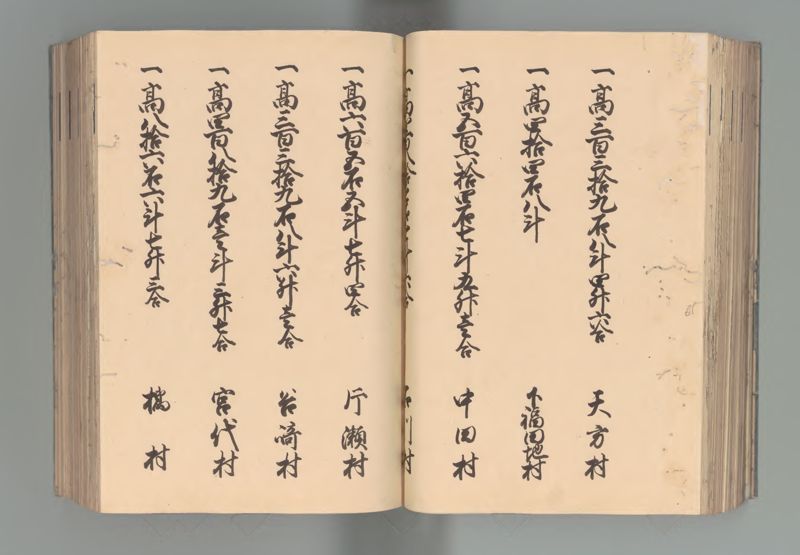 一高三百三拾九石八斗四升六合 天方村
一高四拾四石八斗 下福田地村
一高五百六拾四石七斗五升壱合 中田村
一高 村
一高六百五石五斗七升四合 片瀬村
一高三百三拾九石八斗六升壱合 谷崎村
一高四百八拾九石壱斗三升七合 宮代村
一高八拾六石六斗七升三合 橘村